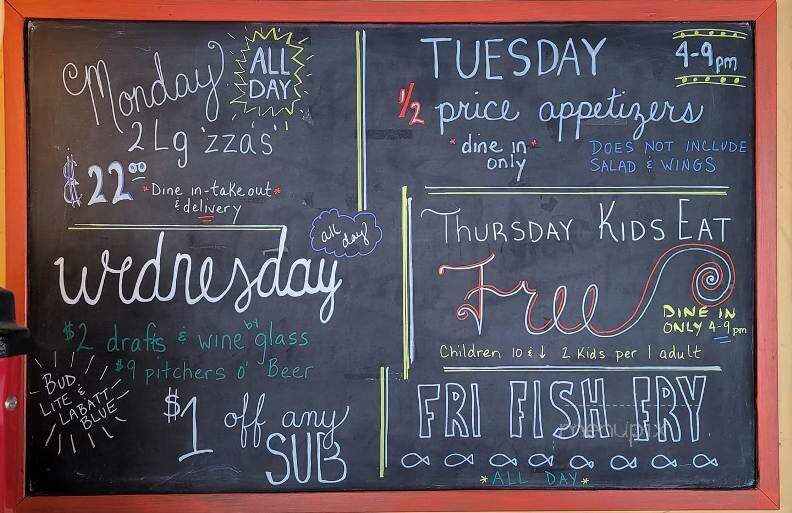 Monday
ALL
DAY
2 Lg 'zzas'
$22.00
*Dine in-take out*
& delivery
TUESDAY
4-9pm
1/2 price appetizers
*dine in*
only
DOES NOT INCLUDE
SALAD & WINGS
wednesday
all
day
$2 drafts & wine by glass
$9 pitchers o' Beer
BUD
LITE &
LABATT
BLUE
$1 off any
SUB
THURSDAY KIDS EAT
Free
DINE IN
ONLY 4-9pm
Children 10 & ↓ 2 Kids per 1 adult
FRI FISH FRY
menupix
*ALL DAY*